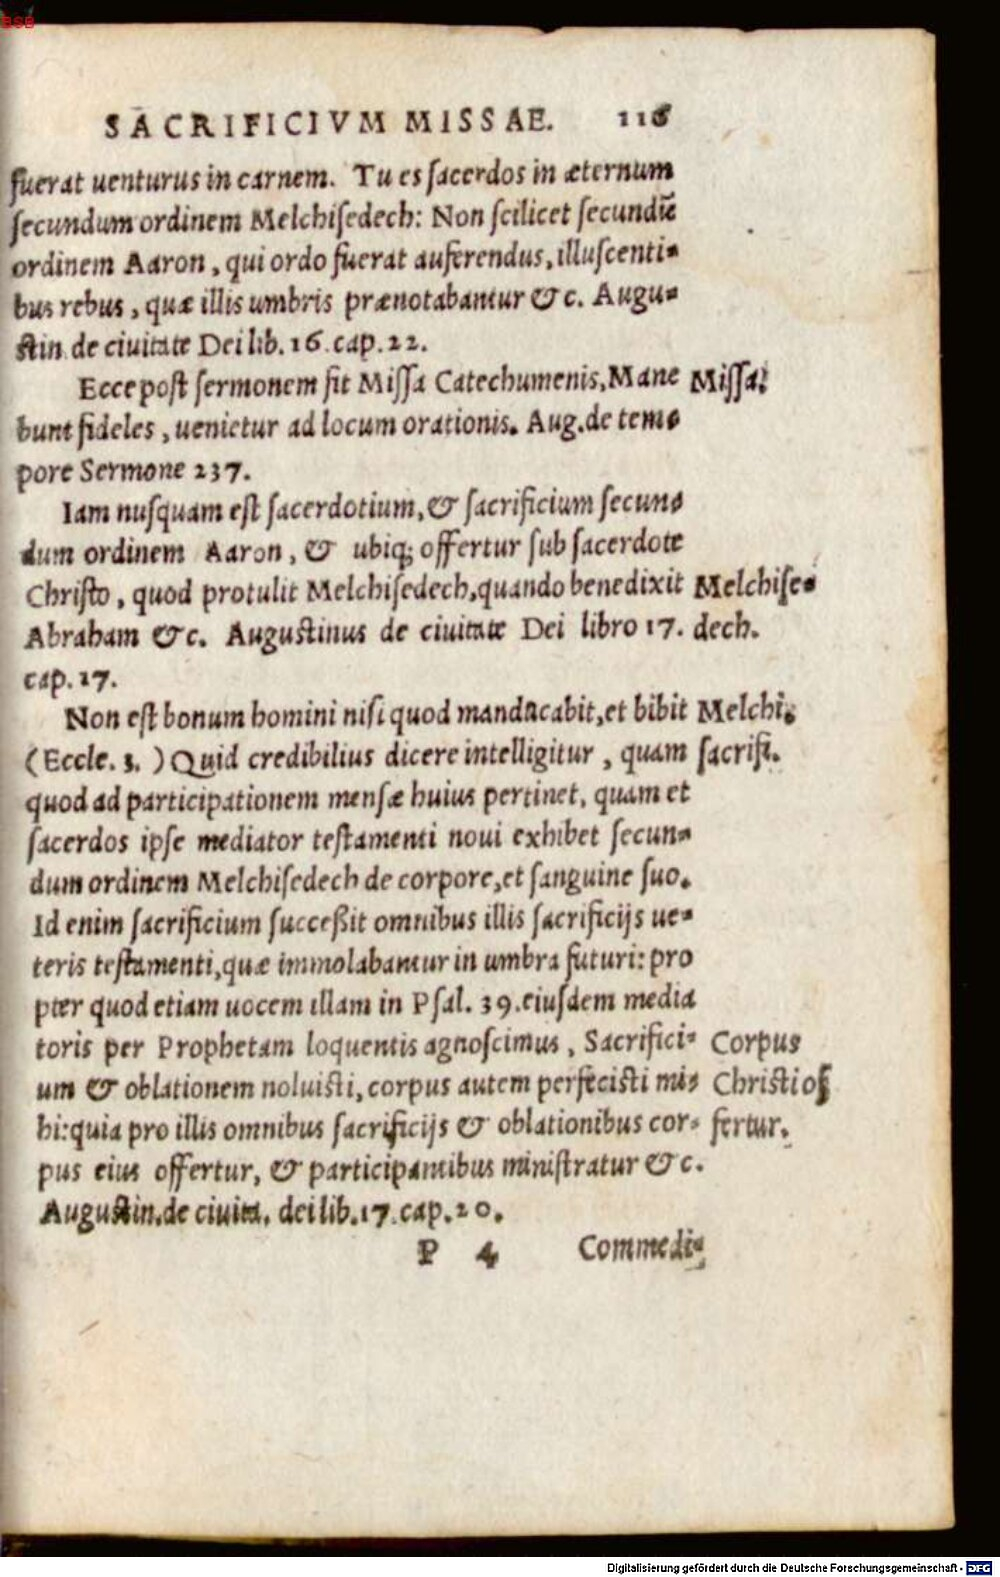 BSB
SACRIFICIVM MISSAE. 116
fuerat uenturus in carnem. Tu es sacerdos in æternum
secundum ordinem Melchisedech: Non scilicet secundũ
ordinem Aaron, qui ordo fuerat auferendus, illuscenti-
bus rebus, quæ illis umbris prænotabantur &c. Augu-
stin. de ciuitate Dei lib. 16. cap. 22.
Ecce post sermonem fit Missa Catechumenis, Mane Missa.
bunt fideles, uenietur ad locum orationis. Aug. de tem-
pore Sermone 237.
Iam nusquam est sacerdotium, & sacrificium secun-
dum ordinem Aaron, & ubiq; offertur sub sacerdote
Christo, quod protulit Melchisedech, quando benedixit Melchise-
Abraham &c. Augustinus de ciuitate Dei libro 17. dech.
cap. 17.
Non est bonum homini nisi quod manducabit, et bibit Melchi.
(Eccle. 3.) Quid credibilius dicere intelligitur, quam sacrifi.
quod ad participationem mensæ huius pertinet, quam et
sacerdos ipse mediator testamenti noui exhibet secun-
dum ordinem Melchisedech de corpore, et sanguine suo.
Id enim sacrificium succeßit omnibus illis sacrificijs ue-
teris testamenti, quæ immolabantur in umbra futuri: pro
pter quod etiam uocem illam in Psal. 39. eiusdem media
toris per Prophetam loquentis agnoscimus, Sacrifici- Corpus
um & oblationem noluisti, corpus autem perfecisti mi- Christi of
hi: quia pro illis omnibus sacrificijs & oblationibus cor- fertur.
pus eius offertur, & participantibus ministratur &c.
Augustin. de ciuita. dei lib. 17. cap. 20.
P 4 Commedi-
Digitalisierung gefördert durch die Deutsche Forschungsgemeinschaft - DFG